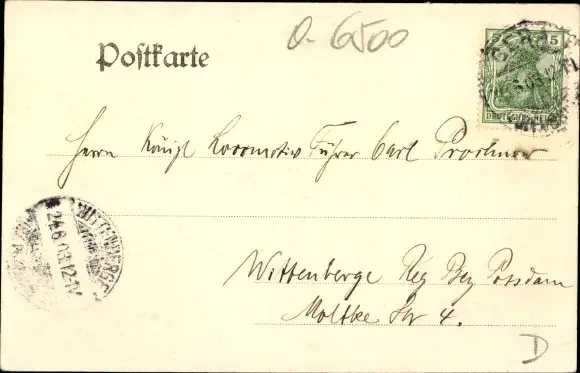 O-6500
Postkarte
5
GERA
DEUTSCHES REICH
Herrn Königl Locomotiv Führer Carl Prochnow
WITTENBERGE
24.6.03.12-1V
Wittenberge Reg Bez Potsdam
Moltke Str 4.
D